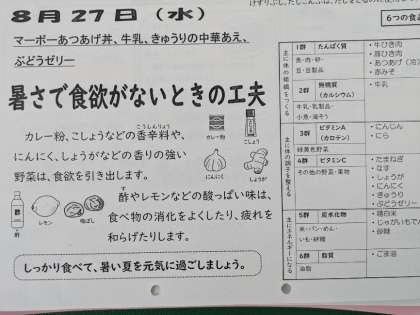 8月27日(水)
マーボーあつあげ丼、牛乳、きゅうりの中華あえ、
ぶどうゼリー
暑さで食欲がないときの工夫
カレー粉、こしょうなどの香辛料や、
こうしんりょう
にんにく、しょうがなどの香りの強い
野菜は、食欲を引き出します。
カレー粉
こしょう
にんにく
しょうが
酢やレモンなどの酸っぱい味は、
す
食べ物の消化をよくしたり、疲れを
和らげたりします。
酢
レモン
梅ぼし
しっかり食べて、暑い夏を元気に過ごしましょう。
6つの食
主に体の組織をつくる
1群 たんぱく質
魚・肉・卵・
豆・豆製品
・牛ひき肉
・豚ひき肉
・あつあげ
・赤みそ
2群 無機質
(カルシウム)
牛乳・乳製品・
小魚・海そう
・牛乳
主に体の調子を整える
3群 ビタミンA
(カロテン)
緑黄色野菜
・にんじん
・にら
4群 ビタミンC
その他の野菜・果物
・たまねぎ
・なす
・しょうが
・にんにく
・きゅうり
・ぶどうゼリー
主にエネルギーになる
5群 炭水化物
米・パン・めん・
いも・砂糖
・精白米
・じゃがいもでん
・砂糖
6群 脂質
油脂
・ごま油